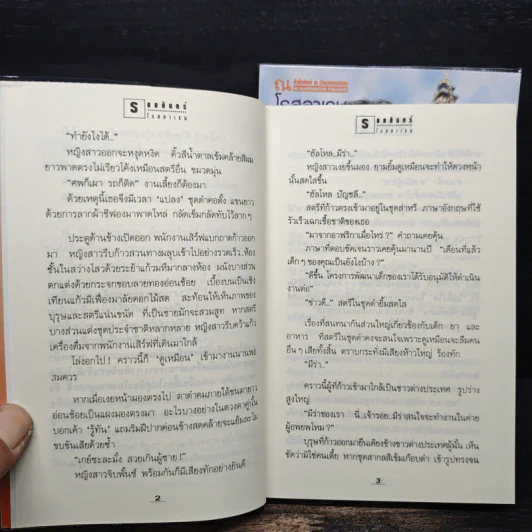 ณ
โรสลาเรน
รอยอินทร์
โรสลาเรน
"ทำยังไงได้.."
หญิงสาวออกจะหงุดหงิด คิ้วสีน้ำตาลเข้มคล้ายสีผม
ยาวพาดตรงไม่เรียวโค้งเหมือนสตรีอื่น ขมวดมุ่น
"ศพก็เผา รถก็ติด" งานเลี้ยงก็ต้องมา
ด้วยเหตุนี้เธอจึงมีเวลา "แปลง" ชุดดำคอตั้ง แขนยาว
ด้วยการลากผ้าชีฟองมาพาดไหล่ กลัดเข็มกลัดทับไว้ลวกๆ
ประตูด้านข้างเปิดออก พนักงานเสิร์ฟแบกถาดก้าวออก
มา หญิงสาวรีบก้าวสวนทางผลุบเข้าไปอย่างรวดเร็ว..ห้อง
ชั้นในสว่างไสวด้วยระย้าแก้วมหึมากลางห้อง ผนังบางส่วน
ตกแต่งด้วยกระจกขอบลายทองอ่อนช้อย เบื้องบนเป็นเชิง
เทียนแก้วมีเฟื่องมาลัยดอกไม้สด สะท้อนให้เห็นภาพของ
บุรุษและสตรีแน่นขนัด ที่เป็นชายมักจะสวมสูท หากสตรี
บางส่วนแต่งชุดประจำชาติหลากหลาย หญิงสาวรีบคว้าแก้ว
เครื่องดื่มจากพนักงานเสิร์ฟที่เดินมาใกล้
โล่งอกไป ! คราวนี้ก็ 'ดูเหมือน' เข้ามางานนานพอ
สมควร
หากเมื่อเงยหน้ามองตรงไป ตาดำคมภายใต้ขนตายาว
อ่อนช้อยเป็นแผงมองตรงมา อะไรบางอย่างในดวงตาคู่นั้น
บอกเค้า 'รู้ทัน' แถมริมฝีปากค่อนข้างสดคล้ายจะแย้มละไม
ขบขันเสียด้วยซ้ำ
"เกย์ซะละมั้ง สวยเกินผู้ชาย !"
หญิงสาวจิบพั้นซ์ พร้อมกันก็มีเสียงทักอย่างยินดี
2
รอยอินทร์
โรสลาเรน
"ฮัลโหล..มีร่า.."
หญิงสาวเงยขึ้นมอง ยามยิ้มดูเหมือนจะทำให้ดวงหน้า
นั้นสดใสขึ้น
"ฮัลโหล บัญชลี.."
สตรีที่ก้าวตรงเข้ามาอยู่ในชุดส่าหรี ภาษาอังกฤษที่ใช้
รัวเร็วเฉกเชื้อชาติของเธอ
"มาจากอาฟริกาเมื่อไหร่ ?" คำถามเคยคุ้น
ภาษาที่ตอบชัดเจนราวเคยคุ้นมานานปี "เดือนที่แล้ว
เด็กๆ ของคุณเป็นยังไงบ้าง ?"
"ดีขึ้น โครงการพัฒนาเด็กของเราได้รับอนุมัติให้ดำเนิน
งานต่อ"
"ข่าวดี.." สตรีในชุดดำยิ้มสดใส
เรื่องที่สนทนากันส่วนใหญ่เกี่ยวข้องกับเด็ก ยา และ
อาหาร ที่สตรีในชุดดำคงจะสนใจเพราะดูเหมือนจะลืมคน
อื่นๆ เสียทั้งสิ้น ตราบกระทั่งมีเสียงห้าวใหญ่ ร้องทัก
"มีร่า.."
คราวนี้ผู้ที่ก้าวเข้ามาใกล้เป็นชาวต่างประเทศ รูปร่าง
สูงใหญ่
"มีร่าของเรา นี่..เจ้ารอย..มีร่าสนใจจะทำงานในค่าย
ผู้อพยพไหม ?"
บุรุษที่ก้าวออกมายืนเคียงข้างชาวต่างประเทศผู้นั้น เห็น
ชัดว่ามิใช่คนเตี้ย หากชุดสากลสีเข้มเกือบดำ เข้ารูปทรงจน
3